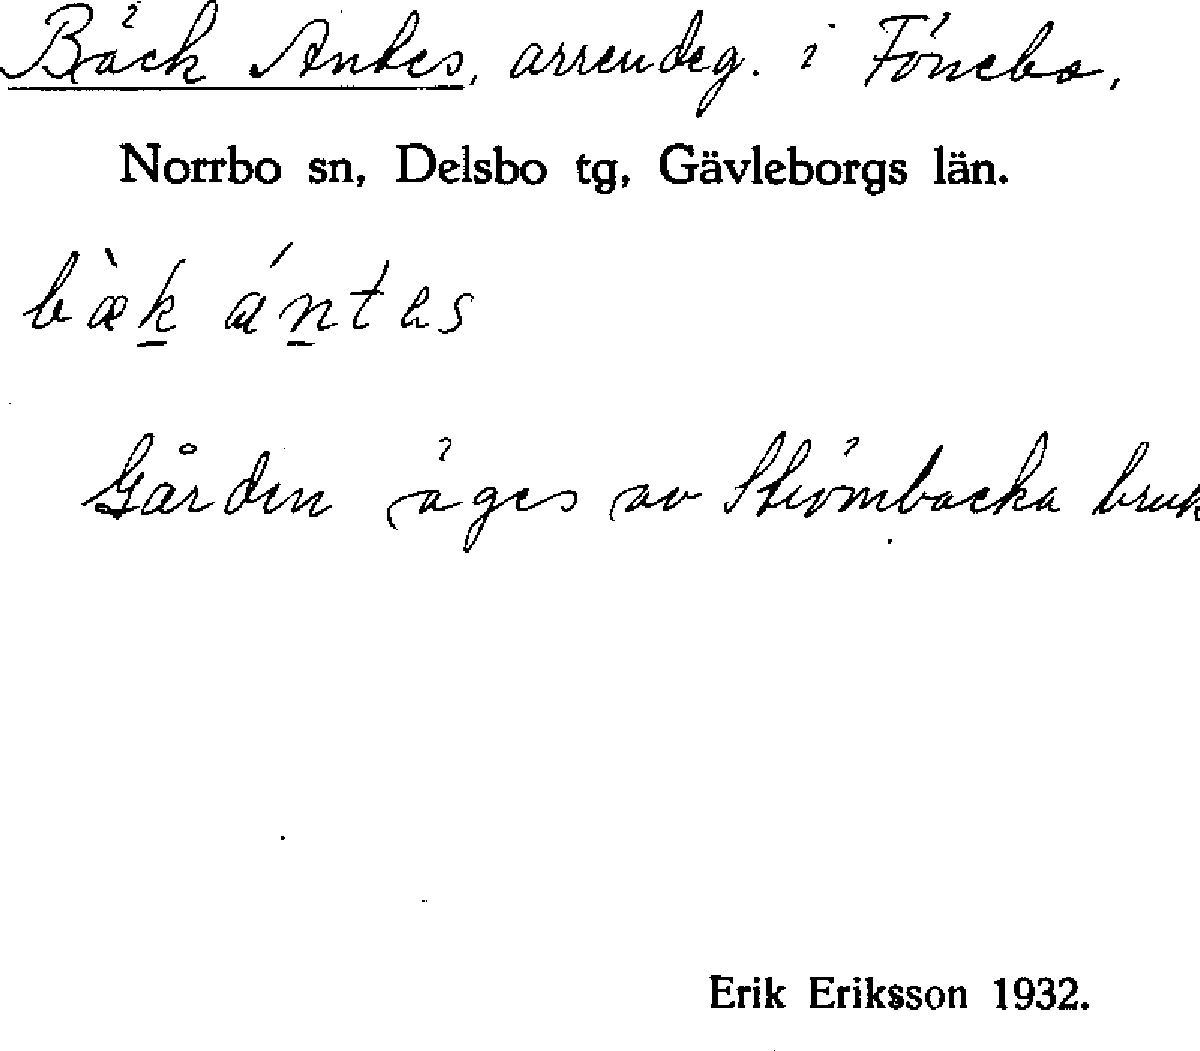 Bäck Antes, arrendeg. i Fönebo,
Norrbo sn, Delsbo tg, Gävleborgs län.
bæ̀k ántes
Gården äges av Strömbacka bruk
Erik Eriksson 1932.